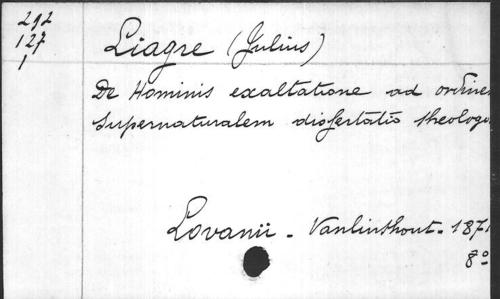 292
127
1
Liagre (Julius)
De Hominis exaltatione ad ordine
supernaturalem dissertatio theolog
Lovanii - Vanlinthout - 1871
8º